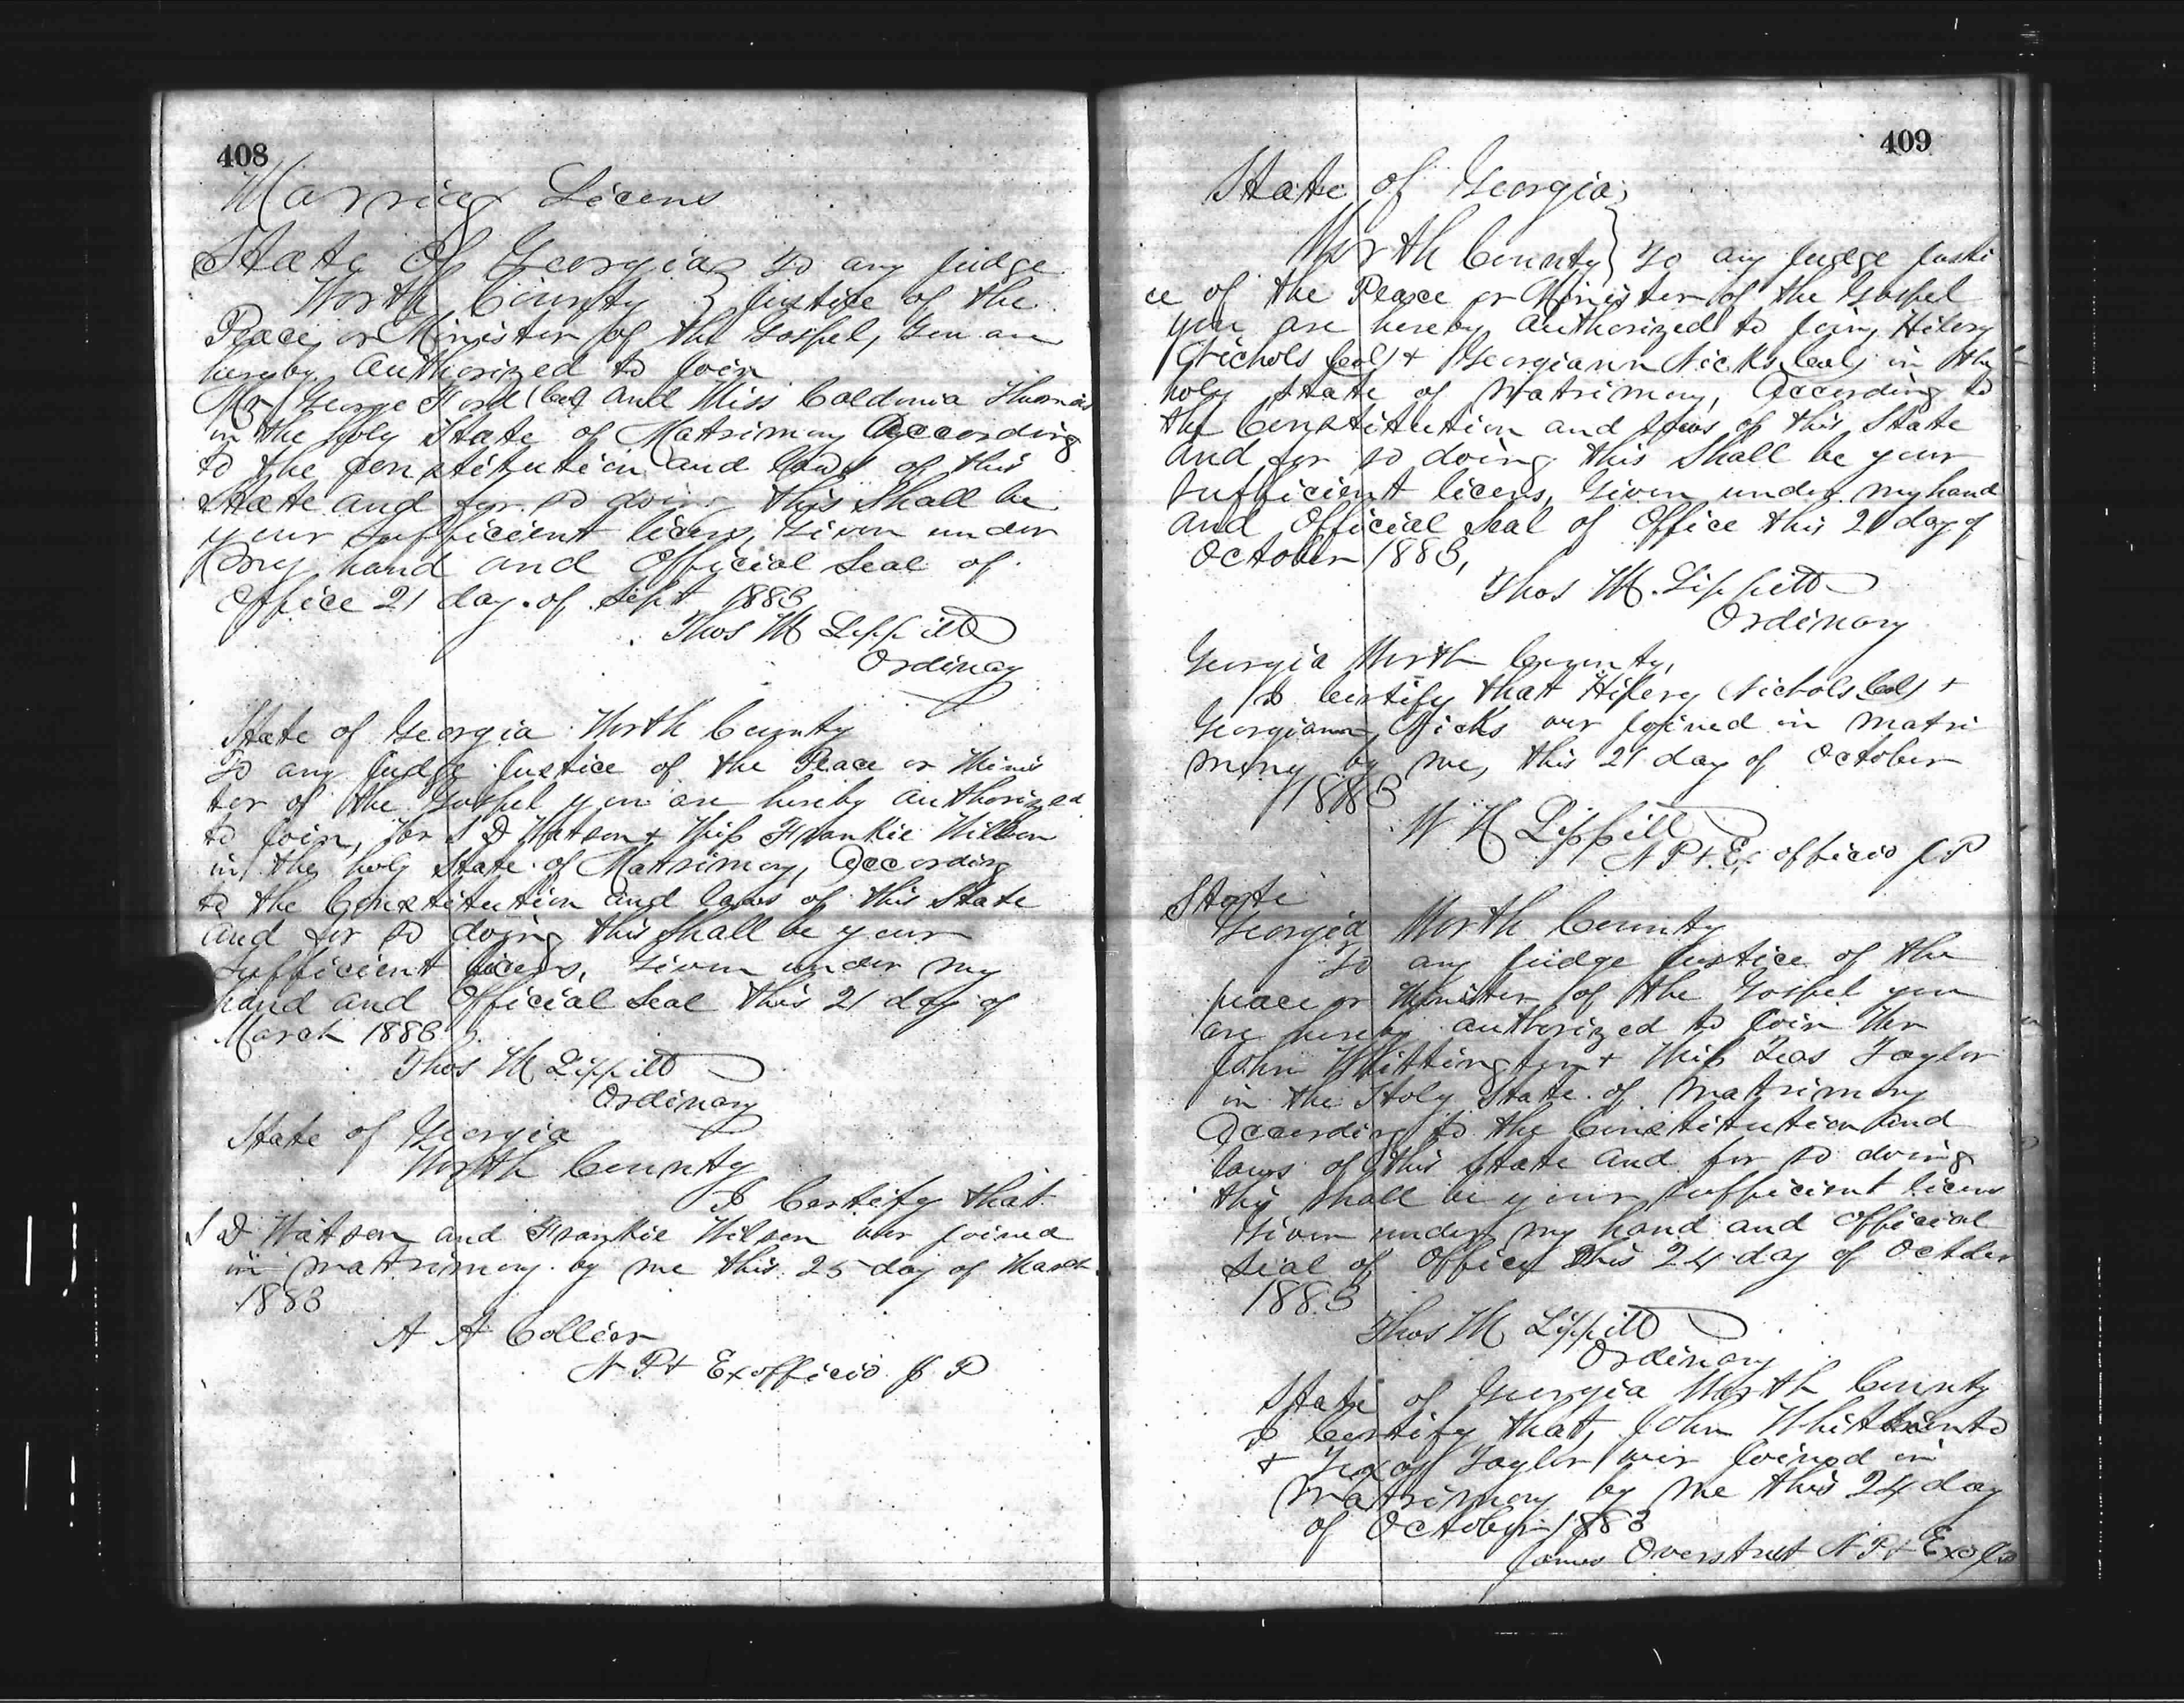 408
Marriag Licens
State Of Georgia } To any Judge
Worth County } Justice of the
Peace or Minister of the Gospel, You are
hereby Authorized to Join
Mr George Ford (Col) and Miss Caldonia Thomas
in the holy State of Matrimony According
to the Constitution and laws of this
State and for so doing this Shall be
your Sufficient licens, Given under
my hand and Official Seal of
Office 21 day of Sept 1883
Thos M Lippitt
Ordinay
State of Georgia Worth County
To any Judge Justice of the Peace or Minis
ter of the Gospel you are hereby authorized
to Join, Mr S D Watson + Miss Frankie Wilson
in the holy State of Matrimony, According
to the Constitution and laws of this State
and for so doing this Shall be your
Sufficient licens, Given under my
hand and Official Seal this 21 day of
March 1883
Thos M Lippitt
Ordinary
State of Georgia
Worth County
I Certify that
S D Watson and Frankie Wilson wer joined
in matrimony by me this 25 day of March
1883
A A Collier
N P + Exofficio J P
409
State of Georgia }
Worth County } To any Judge Justi
ce of the Peace or Minister of the Gospel
you are hereby Authorized to Join, Hilery
Nichols (Col) + Georgiann Nicks (Col) in the
holy State of Matrimony, According to
the Constitution and laws of this State
And for so doing this Shall be your
Sufficient licens, Given under my hand
and Official Seal of Office this 21 day of
October 1883,
Thos M. Lippitt
Ordinary
Georgia Worth County,
I Certify that Hilery Nichols (Col) +
Georgiann Nicks wer joined in matri
mony by me, this 21 day of October
1883
W H Lippitt
N P + Ex officio J P
State
Georgia Worth County
To any Judge Justice of the
peace or Minister of the Gospel you
are hereby authorized to Join Mr
John Whittington + Miss Texas Taylor
in the Holy State of Matrimony
According to the Constitution and
laws of this State and for so doing
this Shall be your Sufficient licens
Given under my hand and Official
Seal of Office this 24 day of October
1883
Thos M Lippitt
Ordinary
State of Georgia Worth County
I Certify that, John
+ Texas Taylor wer Joined in
Matrimony by me this 24 day
of October 1883
James Overstreet N P + Exof